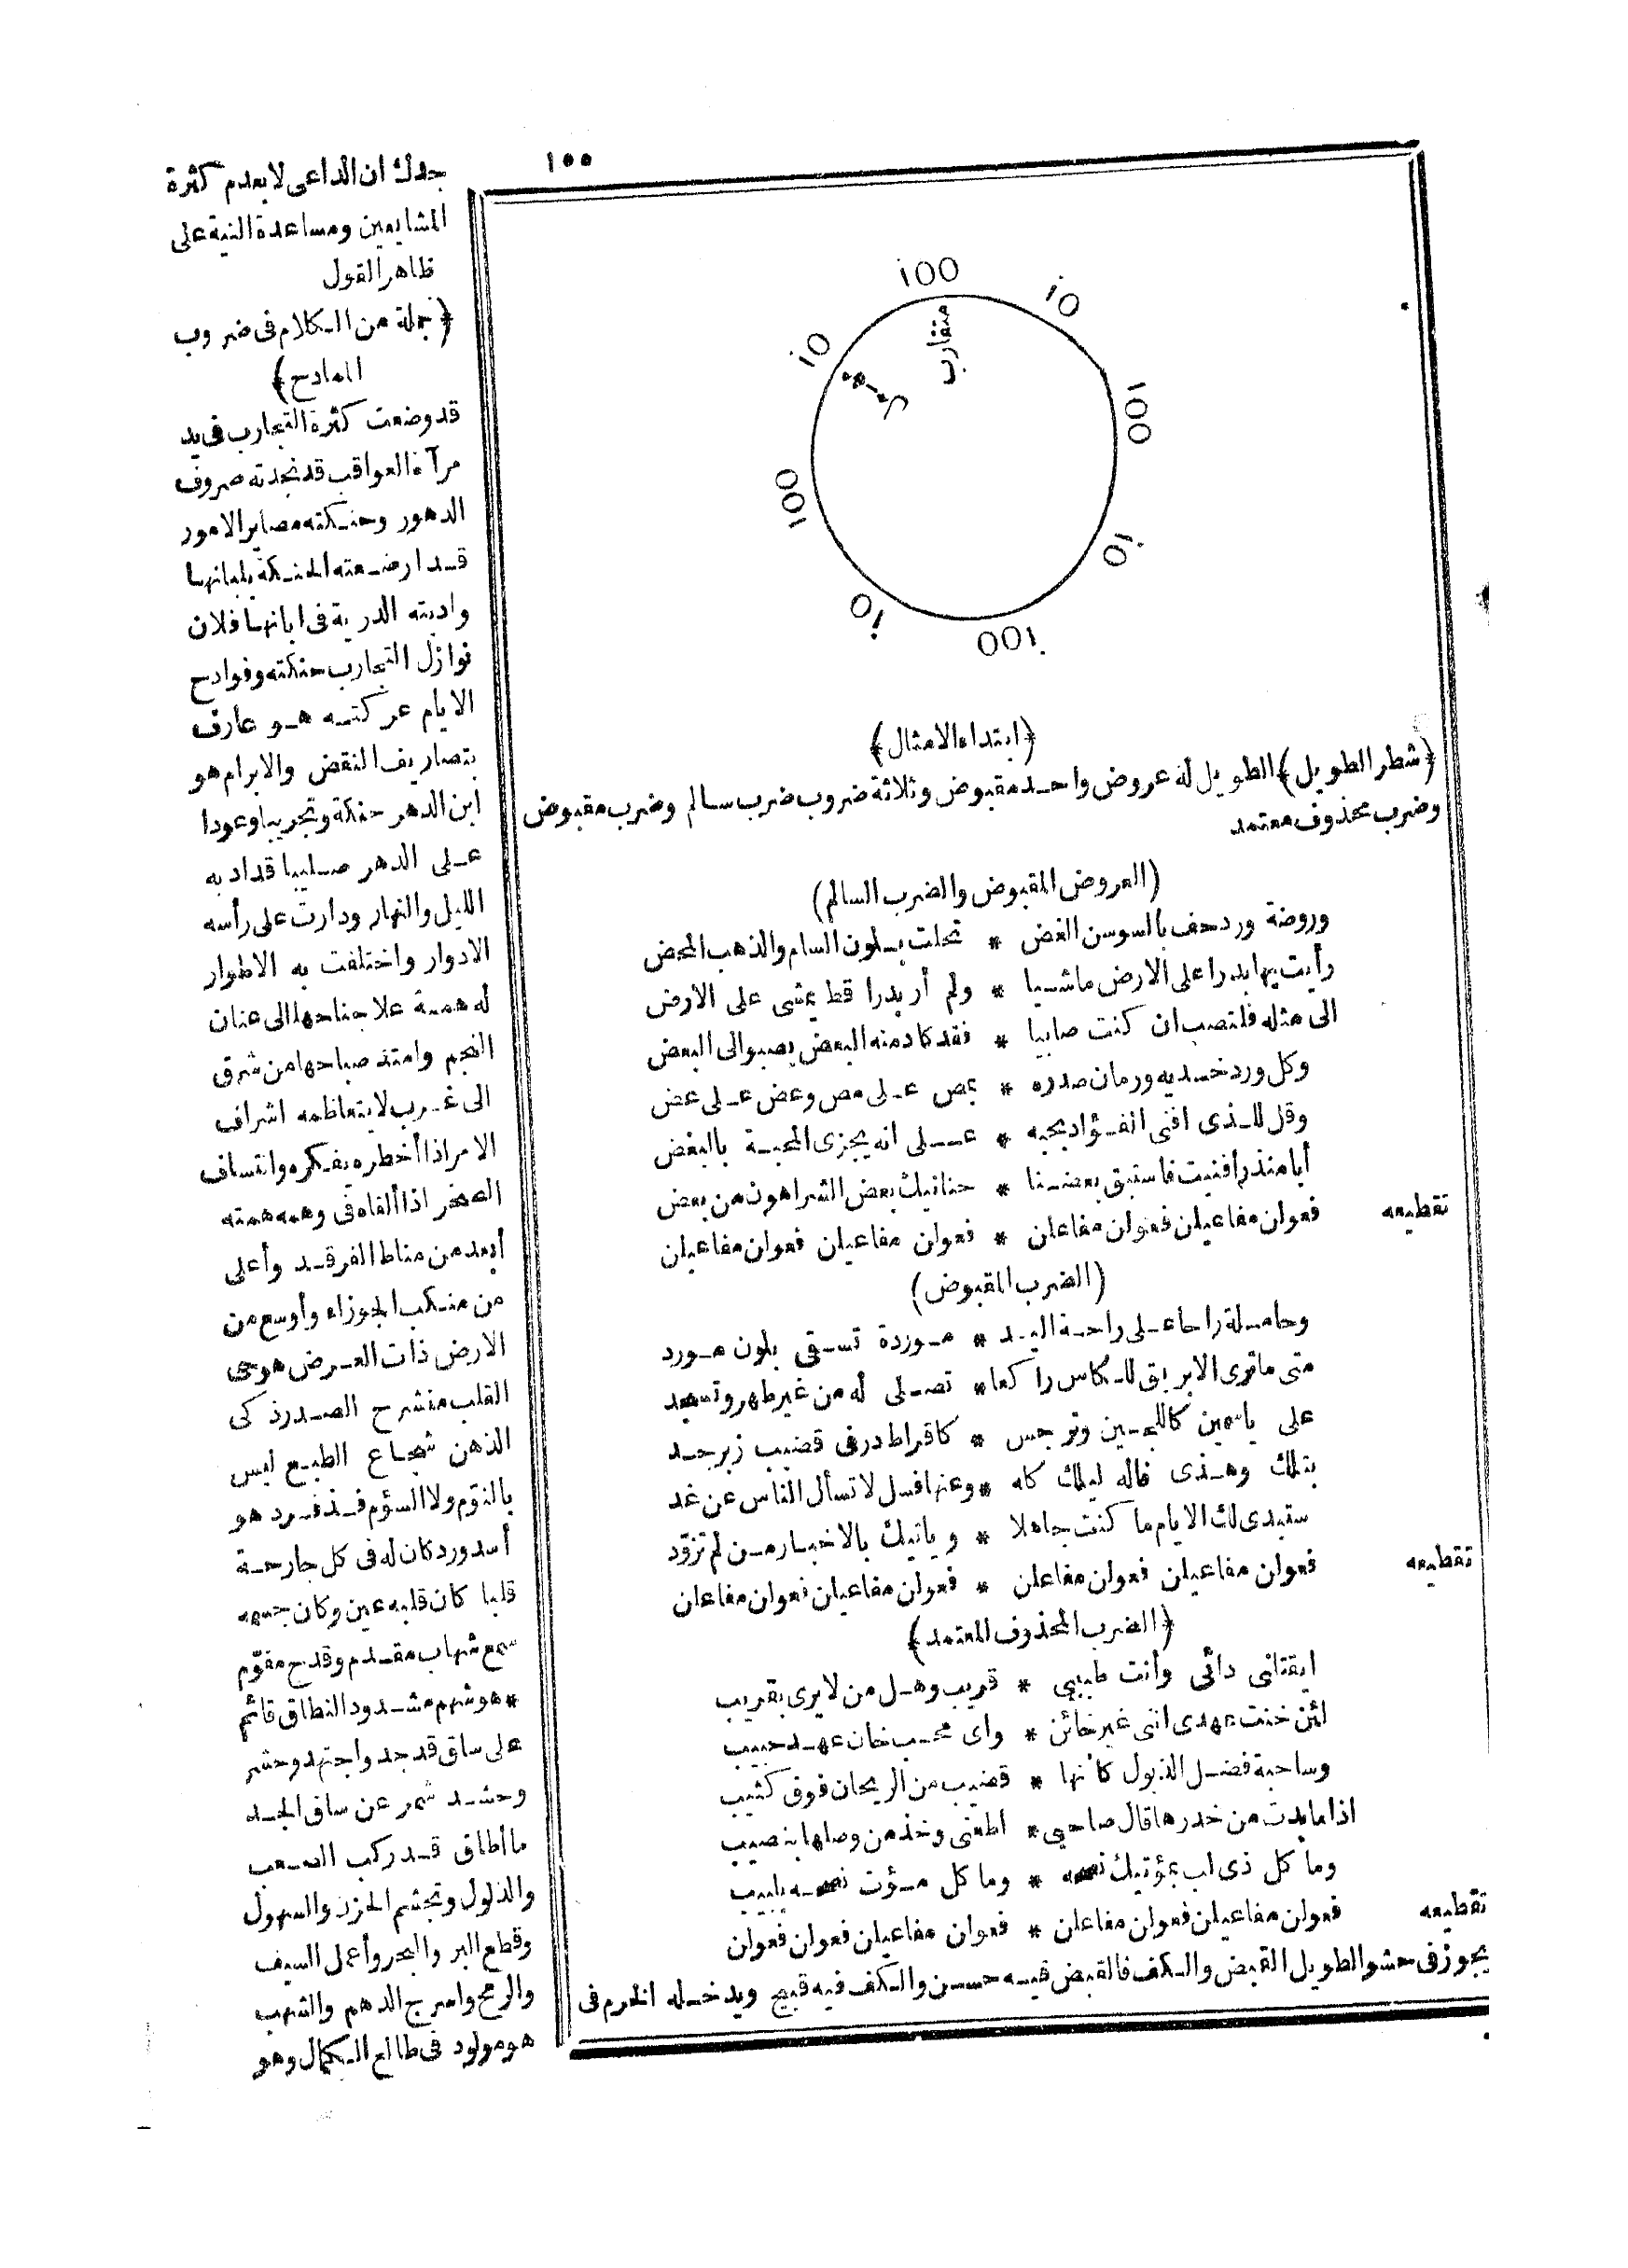 ١٥٥
i00
i0
100
i0
i00
i0
100
i0
متقارب
﴿ابتداء الامثال﴾
﴿شطر الطويل﴾ الطويل له عروض واحد مقبوض وثلاثة ضروب ضرب سالم وضرب مقبوض
وضرب محذوف معتمد
(العروض المقبوض والضرب السالم)
وروضة ورد حف بالسوسن الغض * تحلت بلون السام والذهب المحض
رأيت بها بدرا على الارض ماشيا * ولم أر بدرا قط يمشى على الارض
الى مثله فلتصب ان كنت صابيا * فقد كاد منه البعض يصبو الى البعض
وكل ورد خديه ورمان صدره * بمص على مص وعض على عض
وقل للذى افنى الفؤاد بحبه * على انه يجزى المحبة بالبغض
أبا منذر افنيت فاستبق بعضنا * حنانيك بعض الشر اهون من بعض
تقطيعه فعولن مفاعيلن فعولن مفاعلن * فعولن مفاعيلن فعولن مفاعيلن
(الضرب المقبوض)
وحاملة راحا على راحة اليد * موردة تسقى بلون مورد
متى ما ترى الابريق للكاس راكعا * تصلى له من غير طهر وتسجد
على ياسمين كاللجين ونرجس * كاقراط در فى قضيب زبرجد
بتلك وهذى فاله ليلك كله * وعنها فسل لا تسأل الناس عن غد
ستبدى لك الايام ما كنت جاهلا * وياتيك بالاخبار من لم تزوّد
تقطيعه فعولن مفاعيلن فعولن مفاعلن * فعولن مفاعيلن فعولن مفاعلن
﴿الضرب المحذوف المعتمد﴾
ايقتلنى دائى وأنت طبيبى * قريب وهل من لا يرى بقريب
لئن خنت عهدى اننى غير خائن * واى محب خان عهد حبيب
وساحبة فضل الذيول كأنها * قضيب من الريحان فوق كثيب
اذا ما بدت من خدرها قال صاحبى * اطعنى وخذ من وصلها بنصيب
وما كل ذى لب بمؤتيك نصحه * وما كل مؤت نصحه بلبيب
تقطيعه فعولن مفاعيلن فعولن مفاعلن * فعولن مفاعيلن فعولن فعولن
يجوز فى حشو الطويل القبض والكف فالقبض فيه حسن والكف فيه قبيح ويدخله الخرم فى
جدك ان الداعى لا يعدم كثرة
المشايعين ومساعدة النية على
ظاهر القول
﴿جملة من الكلام فى ضروب
المادح﴾
قد وضعت كثرة التجارب فى يد
مرآة العواقب قد نجذته صروف
الدهور وحنكته مصاير الامور
قد ارضعته الحنكة بلبانها
وادبته الدربة فى ابانها فلان
نوازل التجارب حنكته وفوادح
الايام عركته هو عارف
بتصاريف النقض والابرام هو
ابن الدهر حنكة وتجريبا وعودا
على الدهر صليبا قد ادبه
الليل والنهار ودارت على رأسه
الادوار واختلفت به الاطوار
له همة علا جناحها الى عنان
النجم وامتد صباحها من شرق
الى غرب لا يتعاظمه اشراف
الامر اذا أخطره بفكره وانتساف
الصخر اذا ألقاه فى وهمه همته
أبعد من مناط الفرقد وأعلى
من منكب الجوزاء وأوسع من
الارض ذات العرض هو حى
القلب منشرح الصدر ذكى
الذهن شجاع الطبع ليس
بالنؤم ولا السؤم فذ فرد هو
أسد ورد كان له فى كل جارحة
قلبا كان قلبه عين وكان جسمه
سمع شهاب مقدم وقدح مقوّم
* هو شهم مشدود النطاق قائم
على ساق قد جد واجتهد وحشر
وحشد شمر عن ساق الجد
ما أطاق قد ركب الصعب
والذلول وتجشم الحزن والسهول
وقطع البر والبحر وأعمل السيف
والرمح واسرج الدهم والشهب
هو مولود فى طالع الكمال وهو